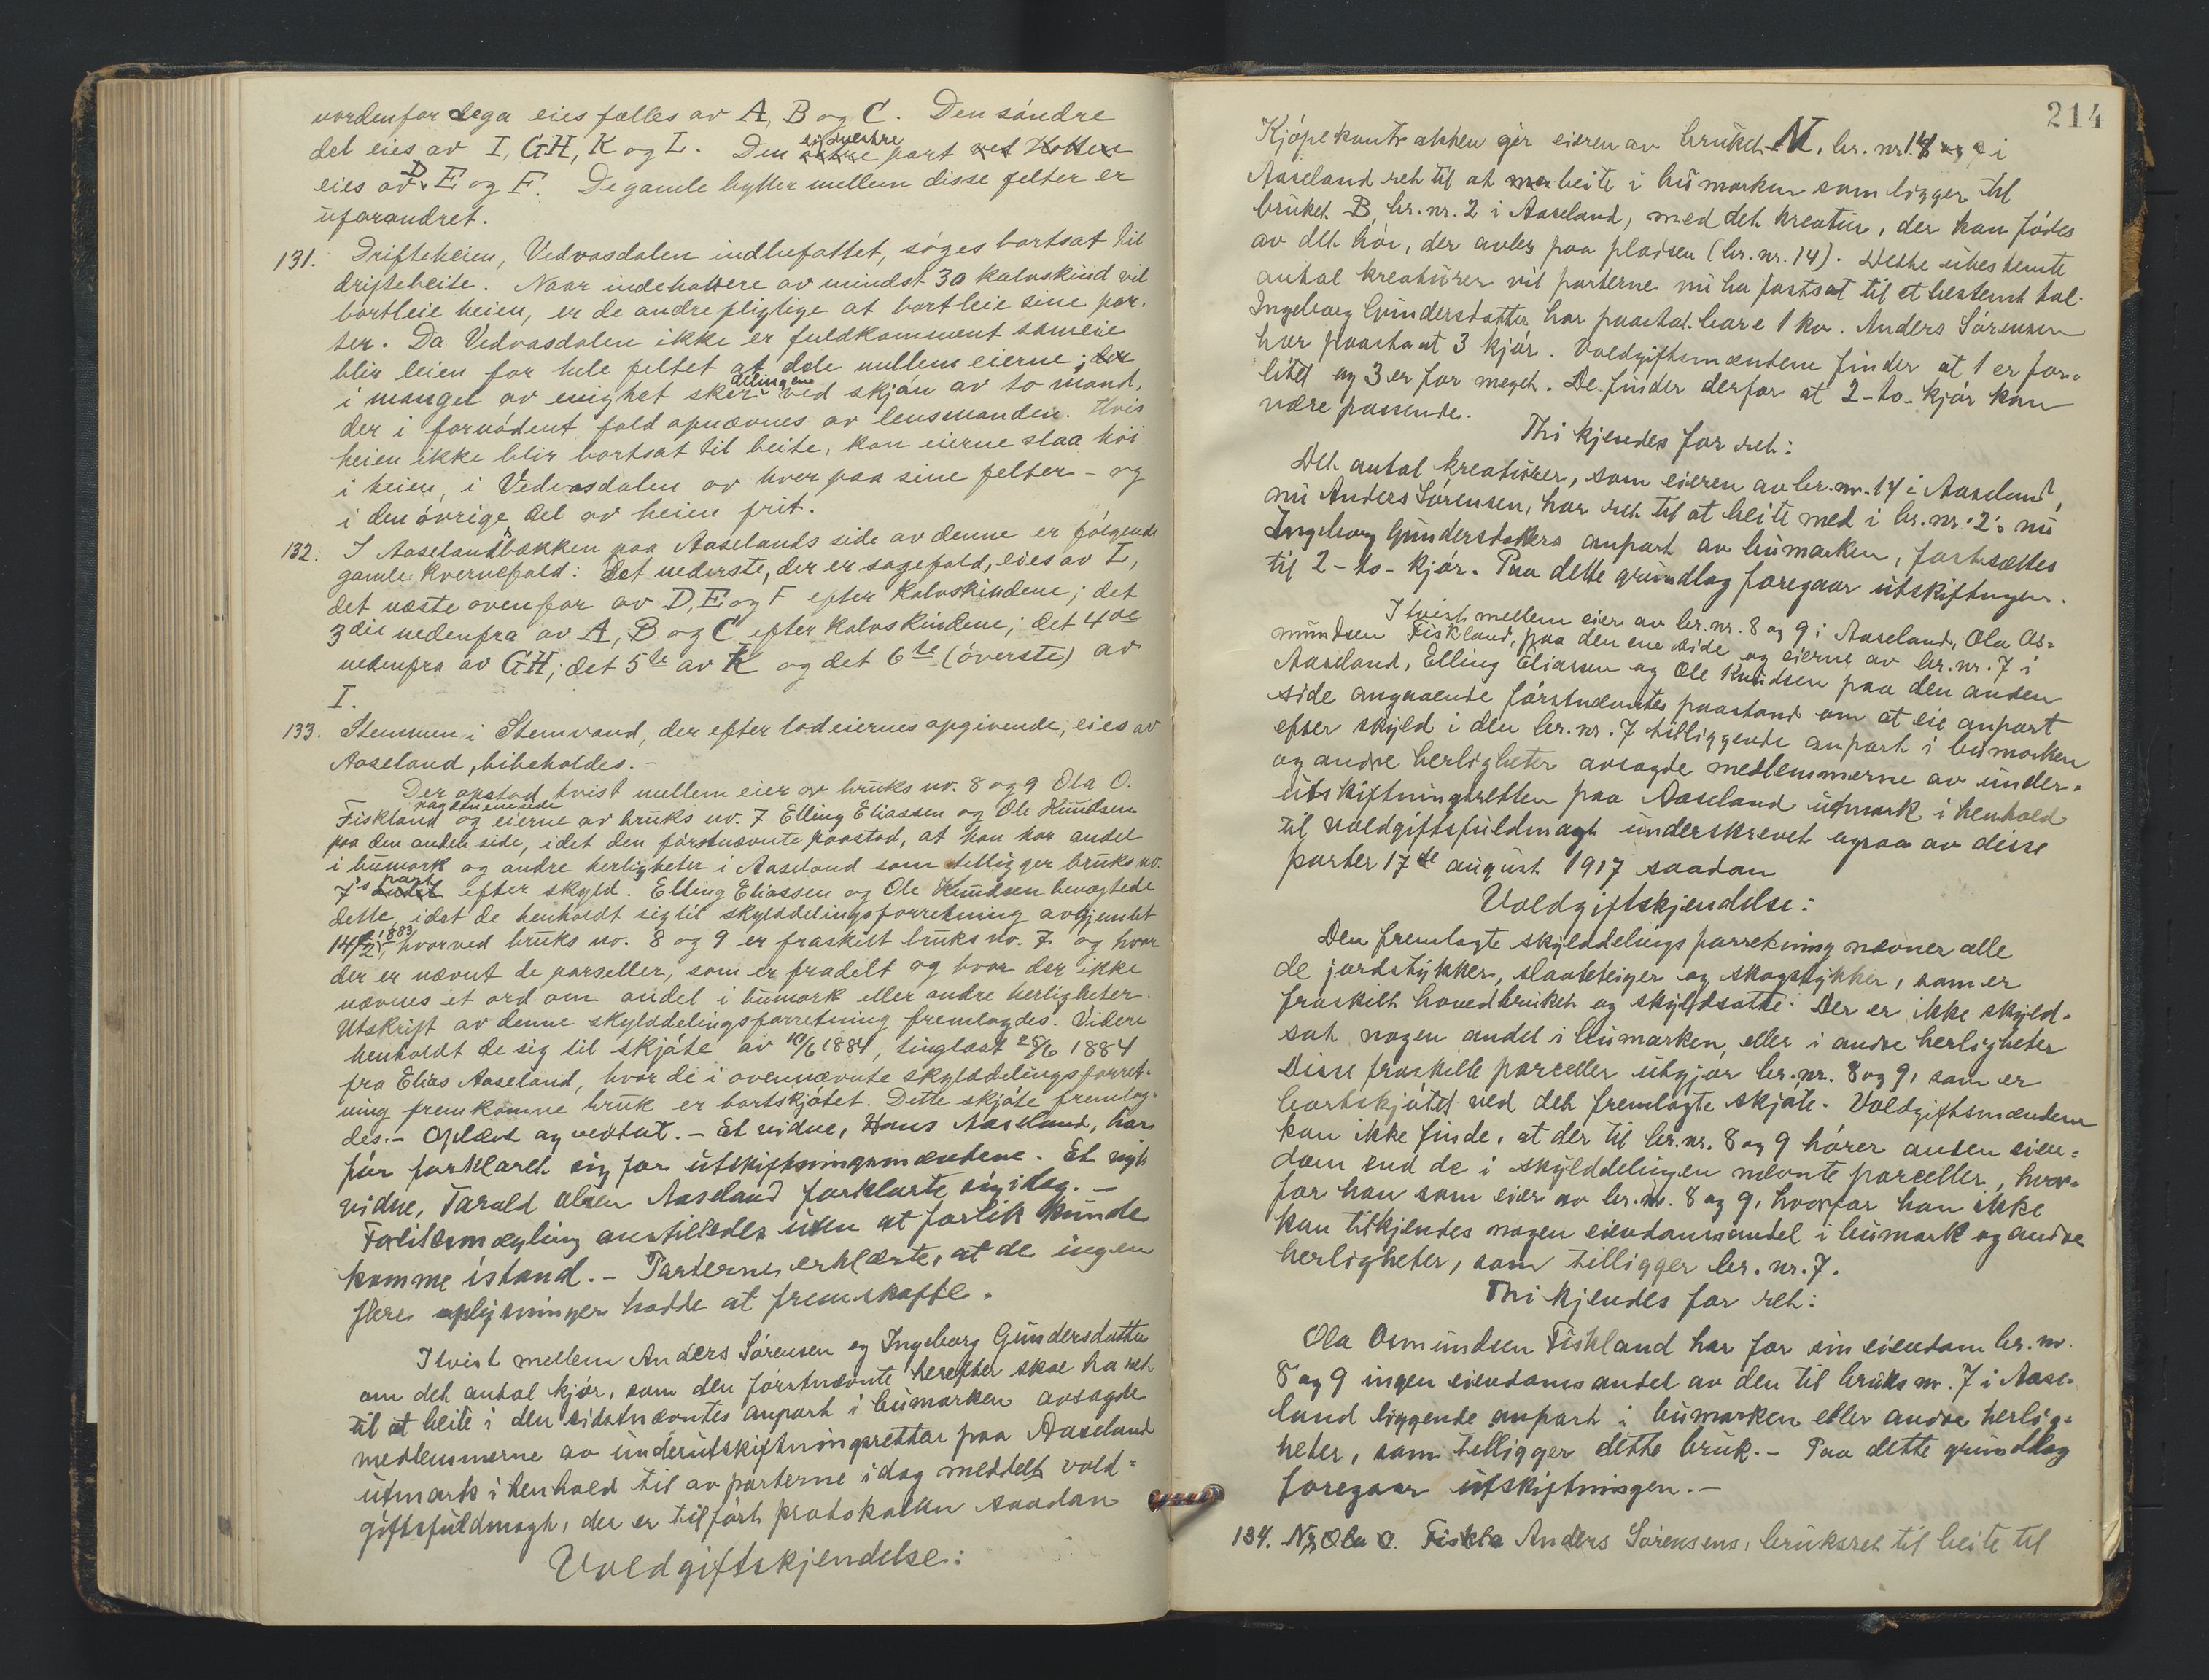 nordenfor Lega eies fælles av A, B og C. Den søndre
del eies av I, GH, K og L. Den sydvestre part
eies av D, E og F. De gamle bytter mellem disse felter er
uforandret.
131. Drifteheien, Vedvasdalen indbefattet, søges bortsat til
driftebeite. Naar indehavere av mindst 30 kalvskind vil
bortleie heien, er de andre pligtige at bortleie sine par-
ter. Da Vedvasdalen ikke er fuldkomment sameie
blir leien for hele feltet at dele mellem eierne;
i mangel av enighet sker delingene ved skjøn av to mænd,
der i fornødent fald opnævnes av lensmanden. Hvis
heien ikke blir bortsat til beite, kan eierne slaa høi
i heien, i Vedvasdalen av hver paa sine felter - og
i den øvrige del av heien frit.
132. I Aaselandsbækken paa Aaselands side av denne er følgende
gamle kvernefald: Det nederste, der er sagefald, eies av I,
det næste ovenfor av D, E og F efter kalvskindene; det
3die nedenfra av A, B og C efter kalvskindene; det 4de
nedenfra av GH; det 5te av K og det 6te (øverste) av
I.
133. Stemmen i Stemvand, der efter lodeiernes opgivende, eies av
Aaseland, bibeholdes. -
Der opstod tvist mellem eier av bruks nr. 8 og 9 Ola O.
Fiskland paa den ene side og eierne av bruks nr. 7 Elling Eliassen og Ole Knudsen
paa den anden side, idet den førstnævnte paastod, at han har andel
i bumark og andre herligheter i Aaseland som tilligger bruks nr.
7's part efter skyld. Elling Eliassen og Ole Knudsen benegtede
dette, idet de henholdt sig til skylddelingsforretning avhjemlet
14/2 1883, hvorved bruks nr. 8 og 9 er fraskilt bruks nr. 7 og hvor
der er nævnt de parseller, som er fradelt og hvor der ikke
nævnes et ord om andel i bumark eller andre herligheter.
Utskrift av denne skylddelingsforretning fremlagdes. Videre
henholdt de sig til skjøte av 10/6 1884, tinglæst 28/6 1884
fra Elias Aaseland, hvor de i ovennævnte skylddelingsforret-
ning fremkomne bruk er bortskjøtet. Dette skjøte fremlag-
des. - Oplæst og vedtat. - Et vidne, Hans Aaseland, har
før forklaret sig for utskiftningsmændene. Et nyt
vidne, Tarald Olsen Aaseland forklarte sig idag. -
Forliksmægling anstilledes uten at forlik kunde
komme istand. - Parterne erklærte, at de ingen
flere oplysninger hadde at fremskaffe.
I tvist mellem Anders Sørensen og Ingeborg Gundersdatter
om det antal kjør, som den førstnævnte herefter skal ha ret
til at beite i den sidstnævntes anpart i bumarken avsagde
medlemmerne av underutskiftningsretten paa Aaseland
utmark i henhold til av parterne idag meddelt vold-
giftsfuldmagt, der er tilført protokollen saadan
Voldgiftskjendelse:
214
Kjøpekontrakten gir eieren av bruket N, br. nr. 14 i
Aaseland ret til at beite i bumarken som ligger til
bruket B, br. nr. 2 i Aaseland, med det kreatur, der kan fødes
av det høi, der avles paa pladsen (br. nr. 14). Dette ubestemte
antal kreaturer vil parterne nu ha fastsat til et bestemt tal.
Ingeborg Gundersdatter har paastat bare 1 ku. Anders Sørensen
har paastaat 3 kjør. Voldgiftsmændene finder at 1 er for
litet og 3 er for meget. De finder derfor at 2 - to - kjør kan
være passende.
Thi kjendes for ret:
Det antal kreaturer, som eieren av br. nr. 14 i Aaseland,
nu Anders Sørensen, har ret til at beite med i br. nr. 2's nu
Ingeborg Gundersdatters anpart av bumarken, fastsættes
til 2 - to - kjør. Paa dette grundlag foregaar utskiftningen.
I tvist mellem eier av br. nr. 8 og 9 i Aaseland, Ola Os-
mundsen Fiskland, paa den ene side og eierne av br. nr. 7 i
Aaseland, Elling Eliassen og Ole Knudsen paa den anden
side angaaende førstnævntes paastand om at eie anpart
efter skyld i den br. nr. 7 tilliggende anpart i bumarken
og andre herligheter avsagde medlemmerne av under-
utskiftningsretten paa Aaseland utmark i henhold
til voldgiftsfuldmagt underskrevet ogsaa av disse
parter 17de august 1917 saadan
Voldgiftskjendelse:
Den fremlagte skylddelingsforretning nævner alle
de jordstykker, slaateteiger og skogstykker, som er
fraskilt hovedbruket og skyldsatte. Der er ikke skyld-
sat nogen andel i bumarken, eller i andre herligheter
Disse fraskilte parceller utgjør br. nr. 8 og 9, som er
bortskjøtet ved det fremlagte skjøte. Voldgiftsmændene
kan ikke finde, at der til br. nr. 8 og 9 hører anden eien-
dom end de i skylddelingen nævnte parceller, hvor-
for han som eier av br. nr. 8 og 9, hvorfor han ikke
kan tilkjendes nogen eiendomsandel i bumark og andre
herligheter, som tilligger br. nr. 7.
Thi kjendes for ret:
Ola Osmundsen Fiskland har for sin eiendom br. nr.
8 og 9 ingen eiendomsandel av den til bruks nr. 7 i Aase-
land liggende anpart i bumarken eller andre herlig-
heter, som tilligger dette bruk. - Paa dette grundlag
foregaar utskiftningen. -
134. Ola O. Anders Sørensens, bruksret til beite til